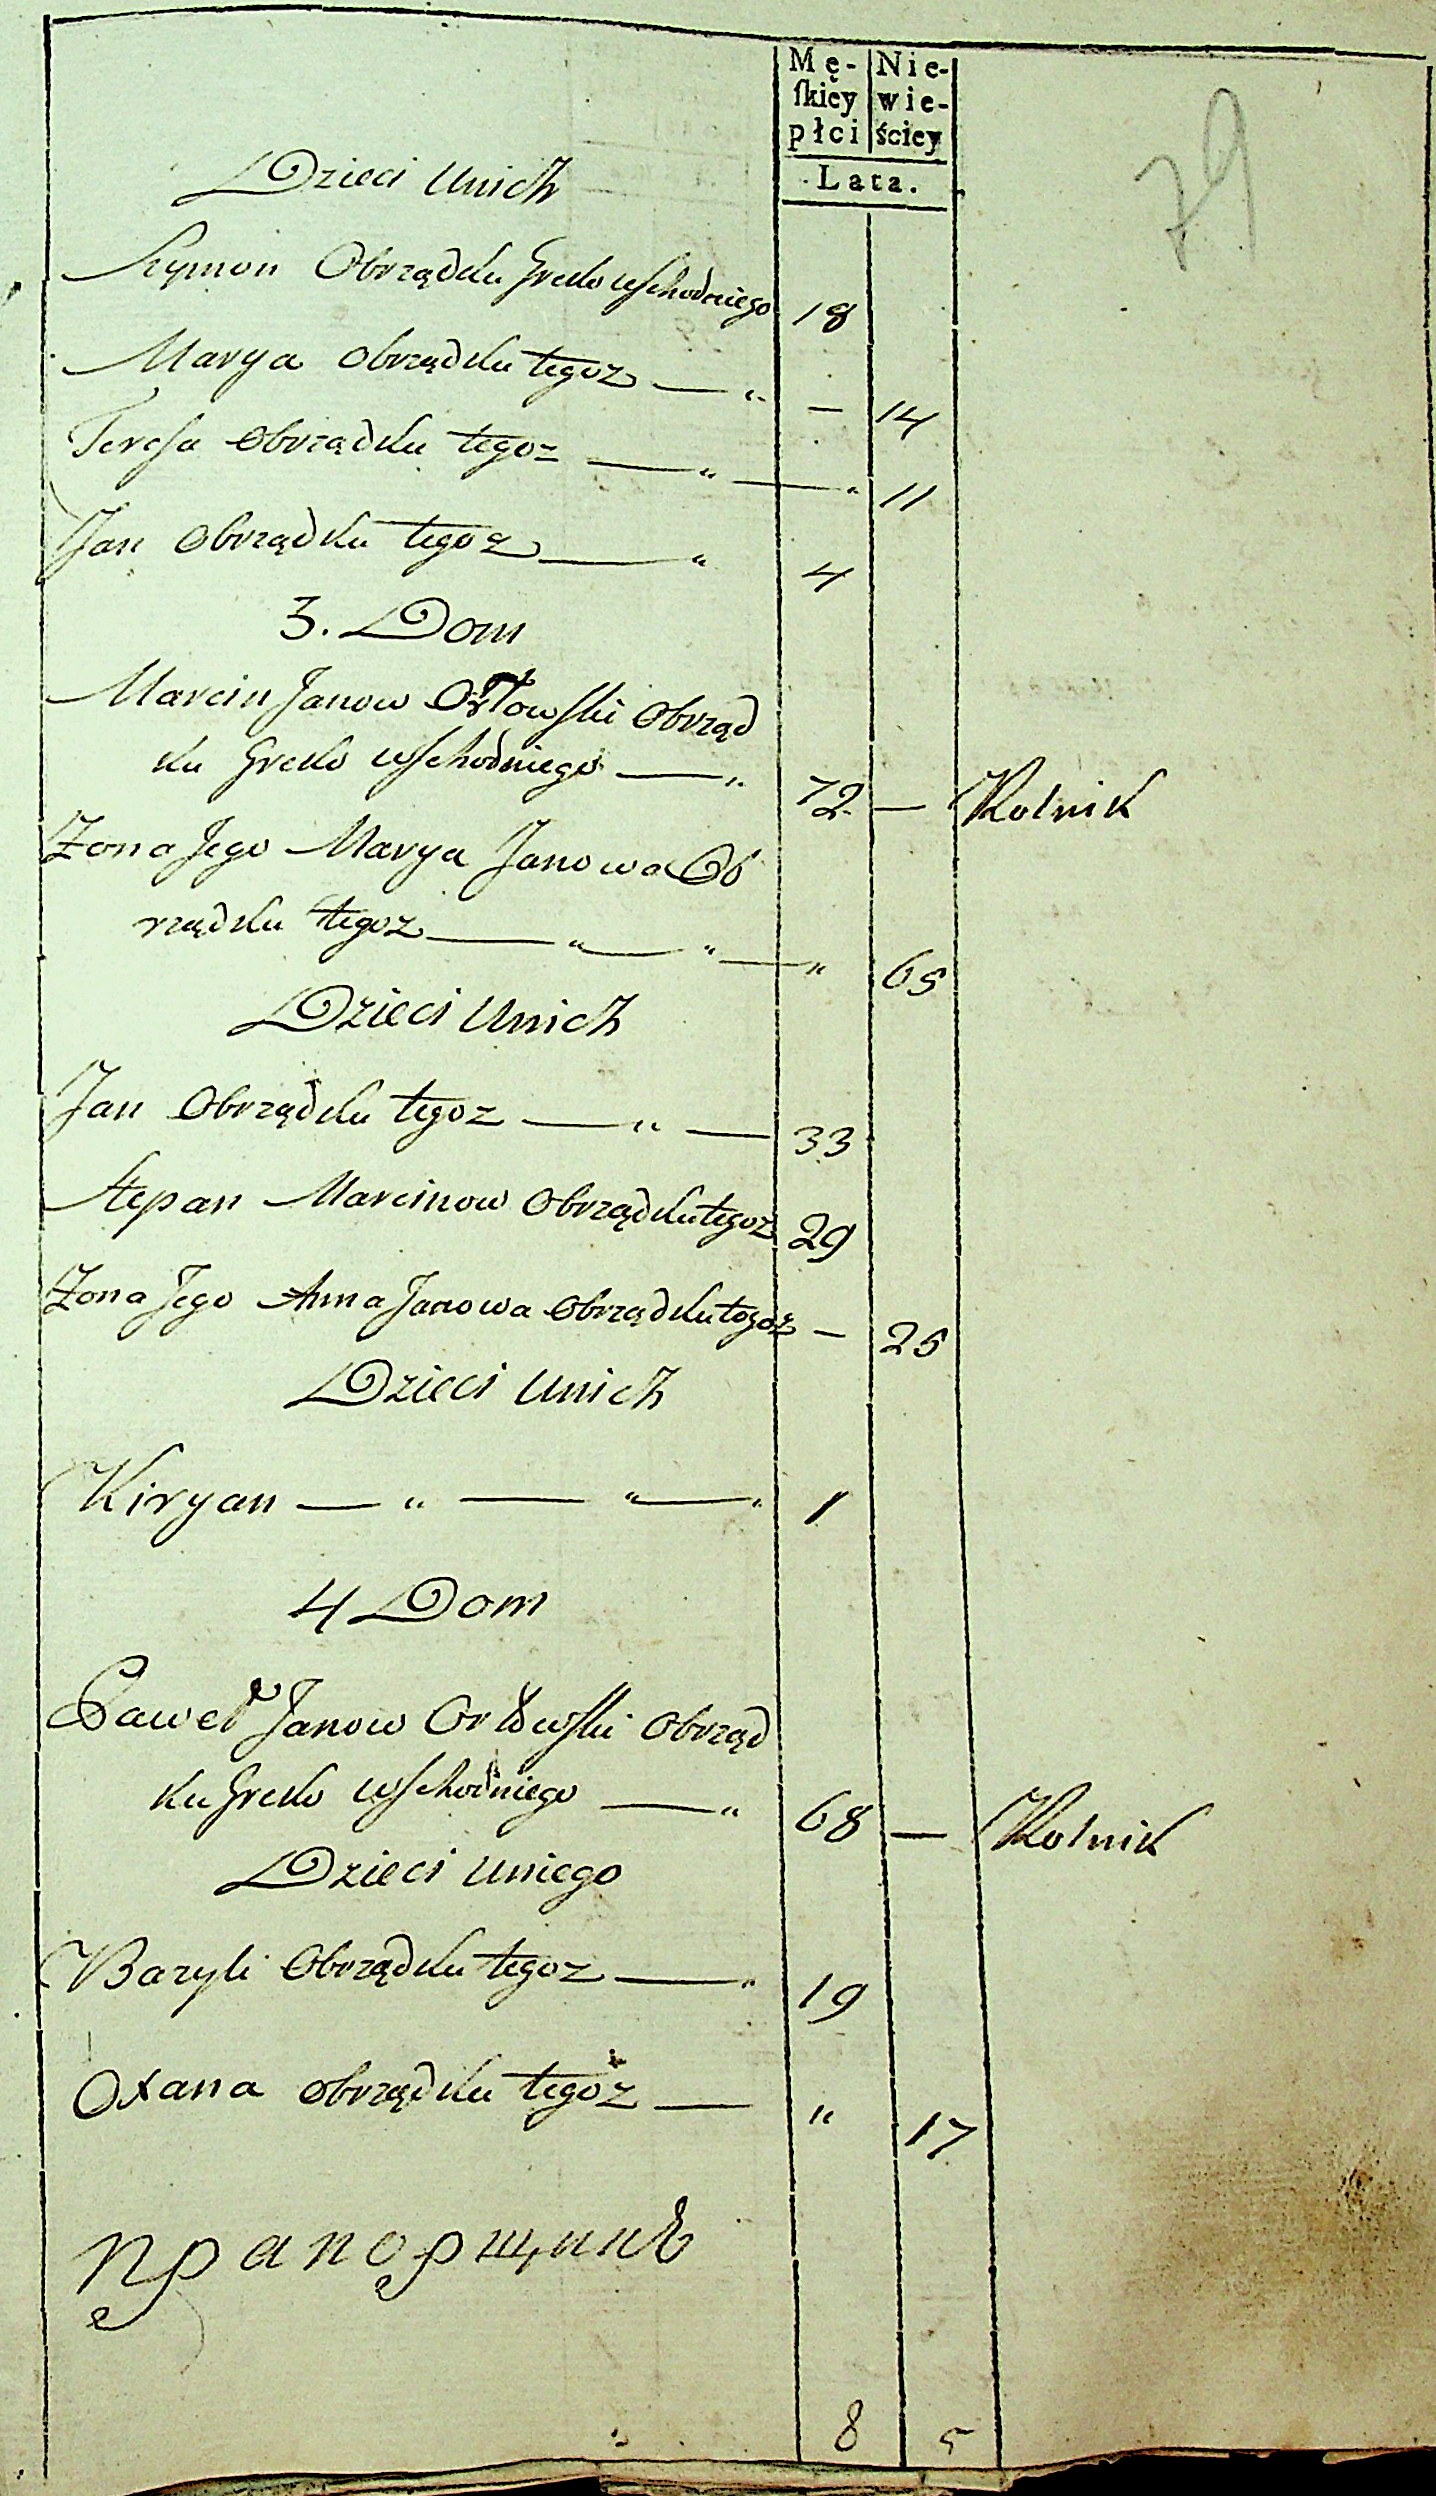 Mę- Nie-
skiey wie-
płci ściey
Lata.
79
Dzieci Unich
Szymon Obrządku Greko wschodniego 18
Marya Obrządku tegoz — „ — 14
Teresa Obrządku tegoz — „ — „ 11
Jan Obrządku tegoż — „ 4
3. Dom
Marcin Janow Orłowski Obrząd
ku Greko wschodniego — „ 72 — Rolnik
Zona Jego Marya Janowa Ob
rządku tegoz — „ — „ — „ 65
Dzieci Unich
Jan Obrządku tegoz — „ — 33
Stepan Marcinow Obrządku tegoz 29
Zona Jego Anna Janowa Obrządku tegoż — 25
Dzieci Unich
Kiryan — „ — „ — „ 1
4 Dom
Paweł Janow Orłowski Obrząd
ku Greko wschodniego — „ 68 — Rolnik
Dzieci Uniego
Bazyli Obrządku tegoz — „ 19
Oxana obrządku tegoż — „ 17
Прапорщикъ
8 5